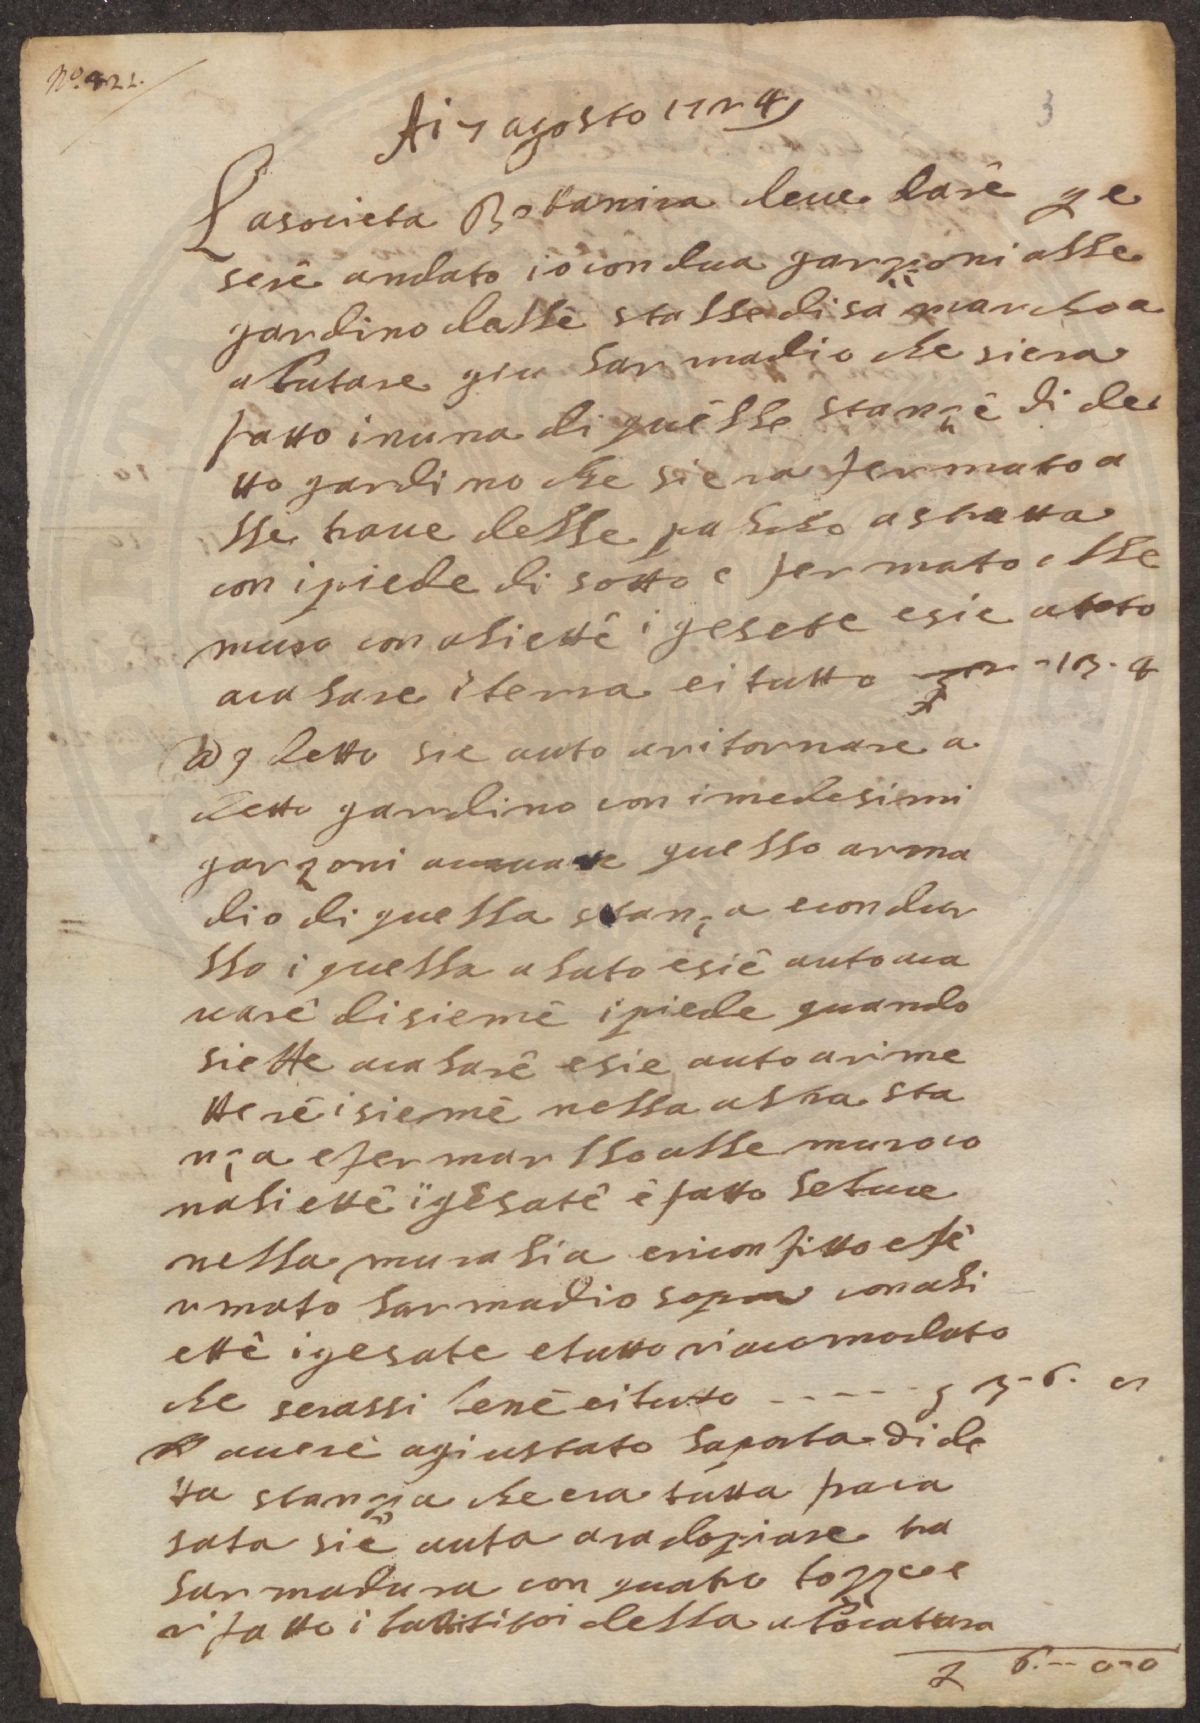 No. 822.
3
Ai 7 agosto 1724
La societa Bottanica deve dare p e
sere andato io con dua garzoni alle
gardino delle stalle di sa marcho a
a butare giu larmadio che siera
fatto inuna di quelle stanze di de
tto gardino che siera fermato a
lle traue delle palcho astratta
con i piede di sotto e fermato alle
muro con aliette i gesate e sie auto
acalare i terra ei tutto 13. 4
E p detto sie auto aritornare a
detto gardino con i medesimi
garzoni acauare quello arma
dio di quella stanza econdur
llo i quella a lato e sie auto aca
uare di sieme i piede quando
siette acalare e sie auto arime
ttere i sieme nella altra sta
nza e fermarllo alle muro co
naliette i gesate e fatto le buce
nella muralia e riconfitto e fe
rmato larmadio sopra con ali
ette i gesate e tutto riacomodato
che serassi bene ei tutto - - - - - 3 - 6.
E auere agiustato laporta di de
tta stanza che era tutta fraca
sata sie auta aradopiare tra
larmadura con quatro toppe e
rifatto i battitoi della
6. -- 0-0